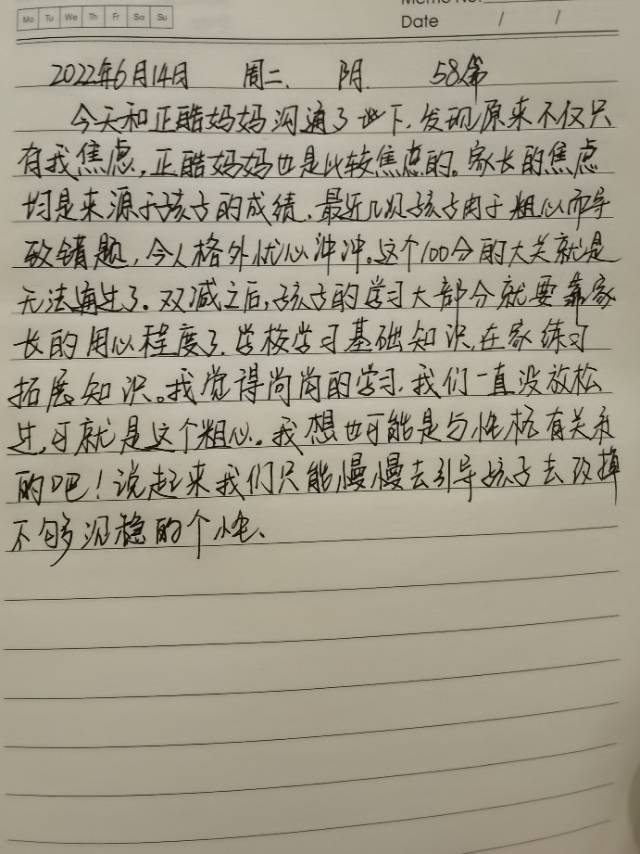 Memo No.
Mo Tu We Th Fr Sa Su
Date / /
2022年6月14日 周二. 阴. 58篇
今天和正酷妈妈沟通了一下.发现原来不仅只
有我焦虑,正酷妈妈也是比较焦虑的。家长的焦虑
均是来源于孩子的成绩.最近几次孩子由于粗心而导
致错题,令人格外忧心冲冲。这个100分的大关就是
无法通过了.双减之后,孩子的学习大部分就要靠家
长的用心程度了.学校学习基础知识.在家练习
拓展知识。我觉得尚尚的学习.我们一直没放松
过,可就是这个粗心。我想也可能是与性格有关系
的吧!说起来我们只能慢慢去引导孩子去改掉
不够沉稳的个性、